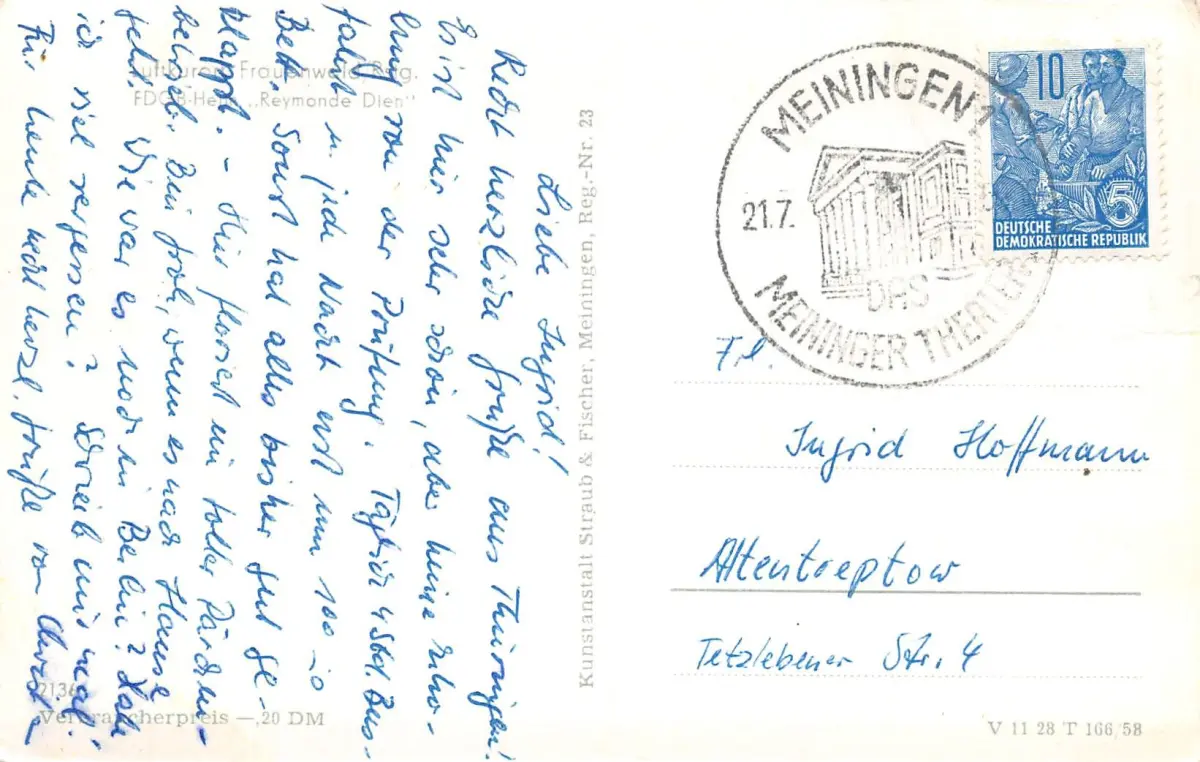 Liebe Ingrid!
Recht herzliche Grüße aus Thüringen!
Es ist hier sehr schön, aber keine Erho-
lung von der Prüfung. Täglich 4 Std. Bus-
fahrt u. jede Nacht erst um
Bett. Sonst hat alles bisher gut ge-
klappt. - Hier ein toller Pärchen-
betrieb. Bin froh, wenn es nach Hause
geht. Wie war es noch in Berlin? Habe
ich viel vergessen? Schreib mir mal!
Für heute recht herzl. Grüße von
Luftkurort Frauenwald, Rstg.
FDGB-Heim „Reymonde Dien"
Verbraucherpreis —,20 DM
Kunstanstalt Straub & Fischer, Meiningen, Reg.-Nr. 23
MEININGEN 1
21.7.
DAS
MEININGER THEATER
10
5
DEUTSCHE
DEMOKRATISCHE REPUBLIK
Frl.
Ingrid Hoffmann
Altentreptow
Tetzlebener Str. 4
V 11 28 T 166/58